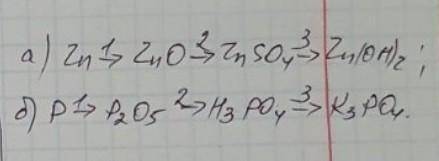 а) Zn 1→ ZnO 2→ ZnSO4 3→ Zn(OH)2 ;
б) P 1→ P2O5 2→ H3PO4 3→ K3PO4.